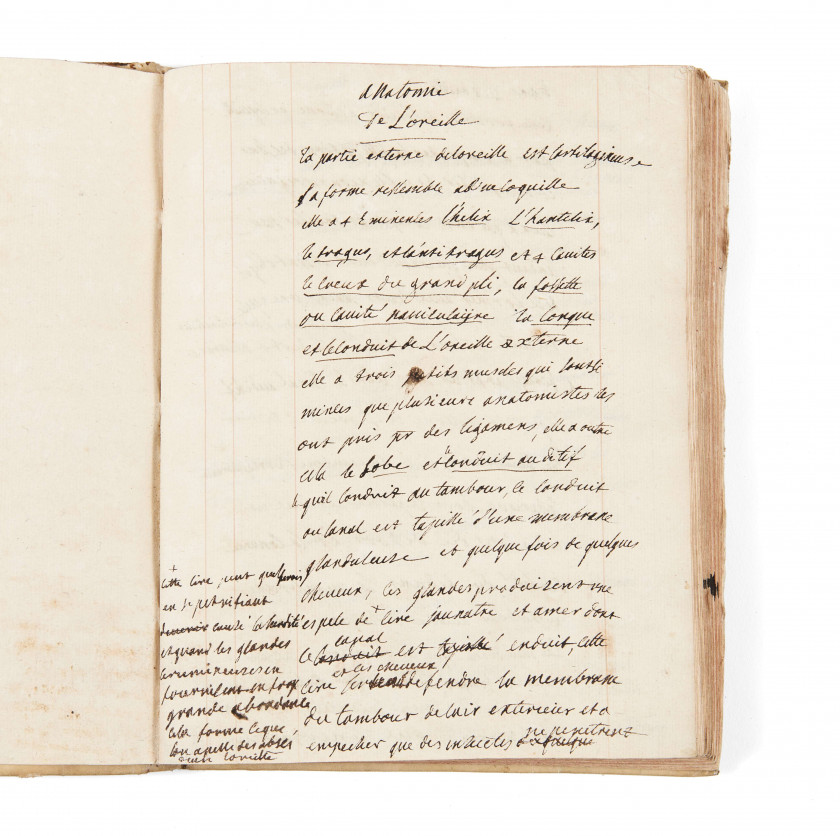 anatomie
de L'oreille
la partie externe deloreille est Cartilagineuse
sa forme ressemble adine Coquille
elle a 4 Eminences l'helix L'hantelix,
le tragus, et lantitragus et 4 Cavites
le creux du grand pli, la fossette
ou Cavité naviculaijre la Conque
et le Conduit de L'oreille Externe
elle a trois petits muscles qui sont si
minces que plusieurs anatomistes les
ont pris pr des ligamens, elle a outre
cela le Lobe et le Conduit auditif
qui Conduit au tambour, le conduit
ou Canal est tapissé d'une membrane
glanduleuse et quelque fois de quelques
cheveux, les glandes produisent une
espece de + Cire jaunatre et amer dont
le Conduit canal est tapissé enduit, Cette
et les cheveux
Cire defendre la membrane
du tambour de lair exterieier et a
empecher que des insectes ne penetrent
+
Cette Cire peut quelquefois
en se petrifiant
devenir causé la surdité
et quand les glandes
ceruminieuses en
fournissent en trop
grande abondance
cela forme ce que
lon apelle des abcés